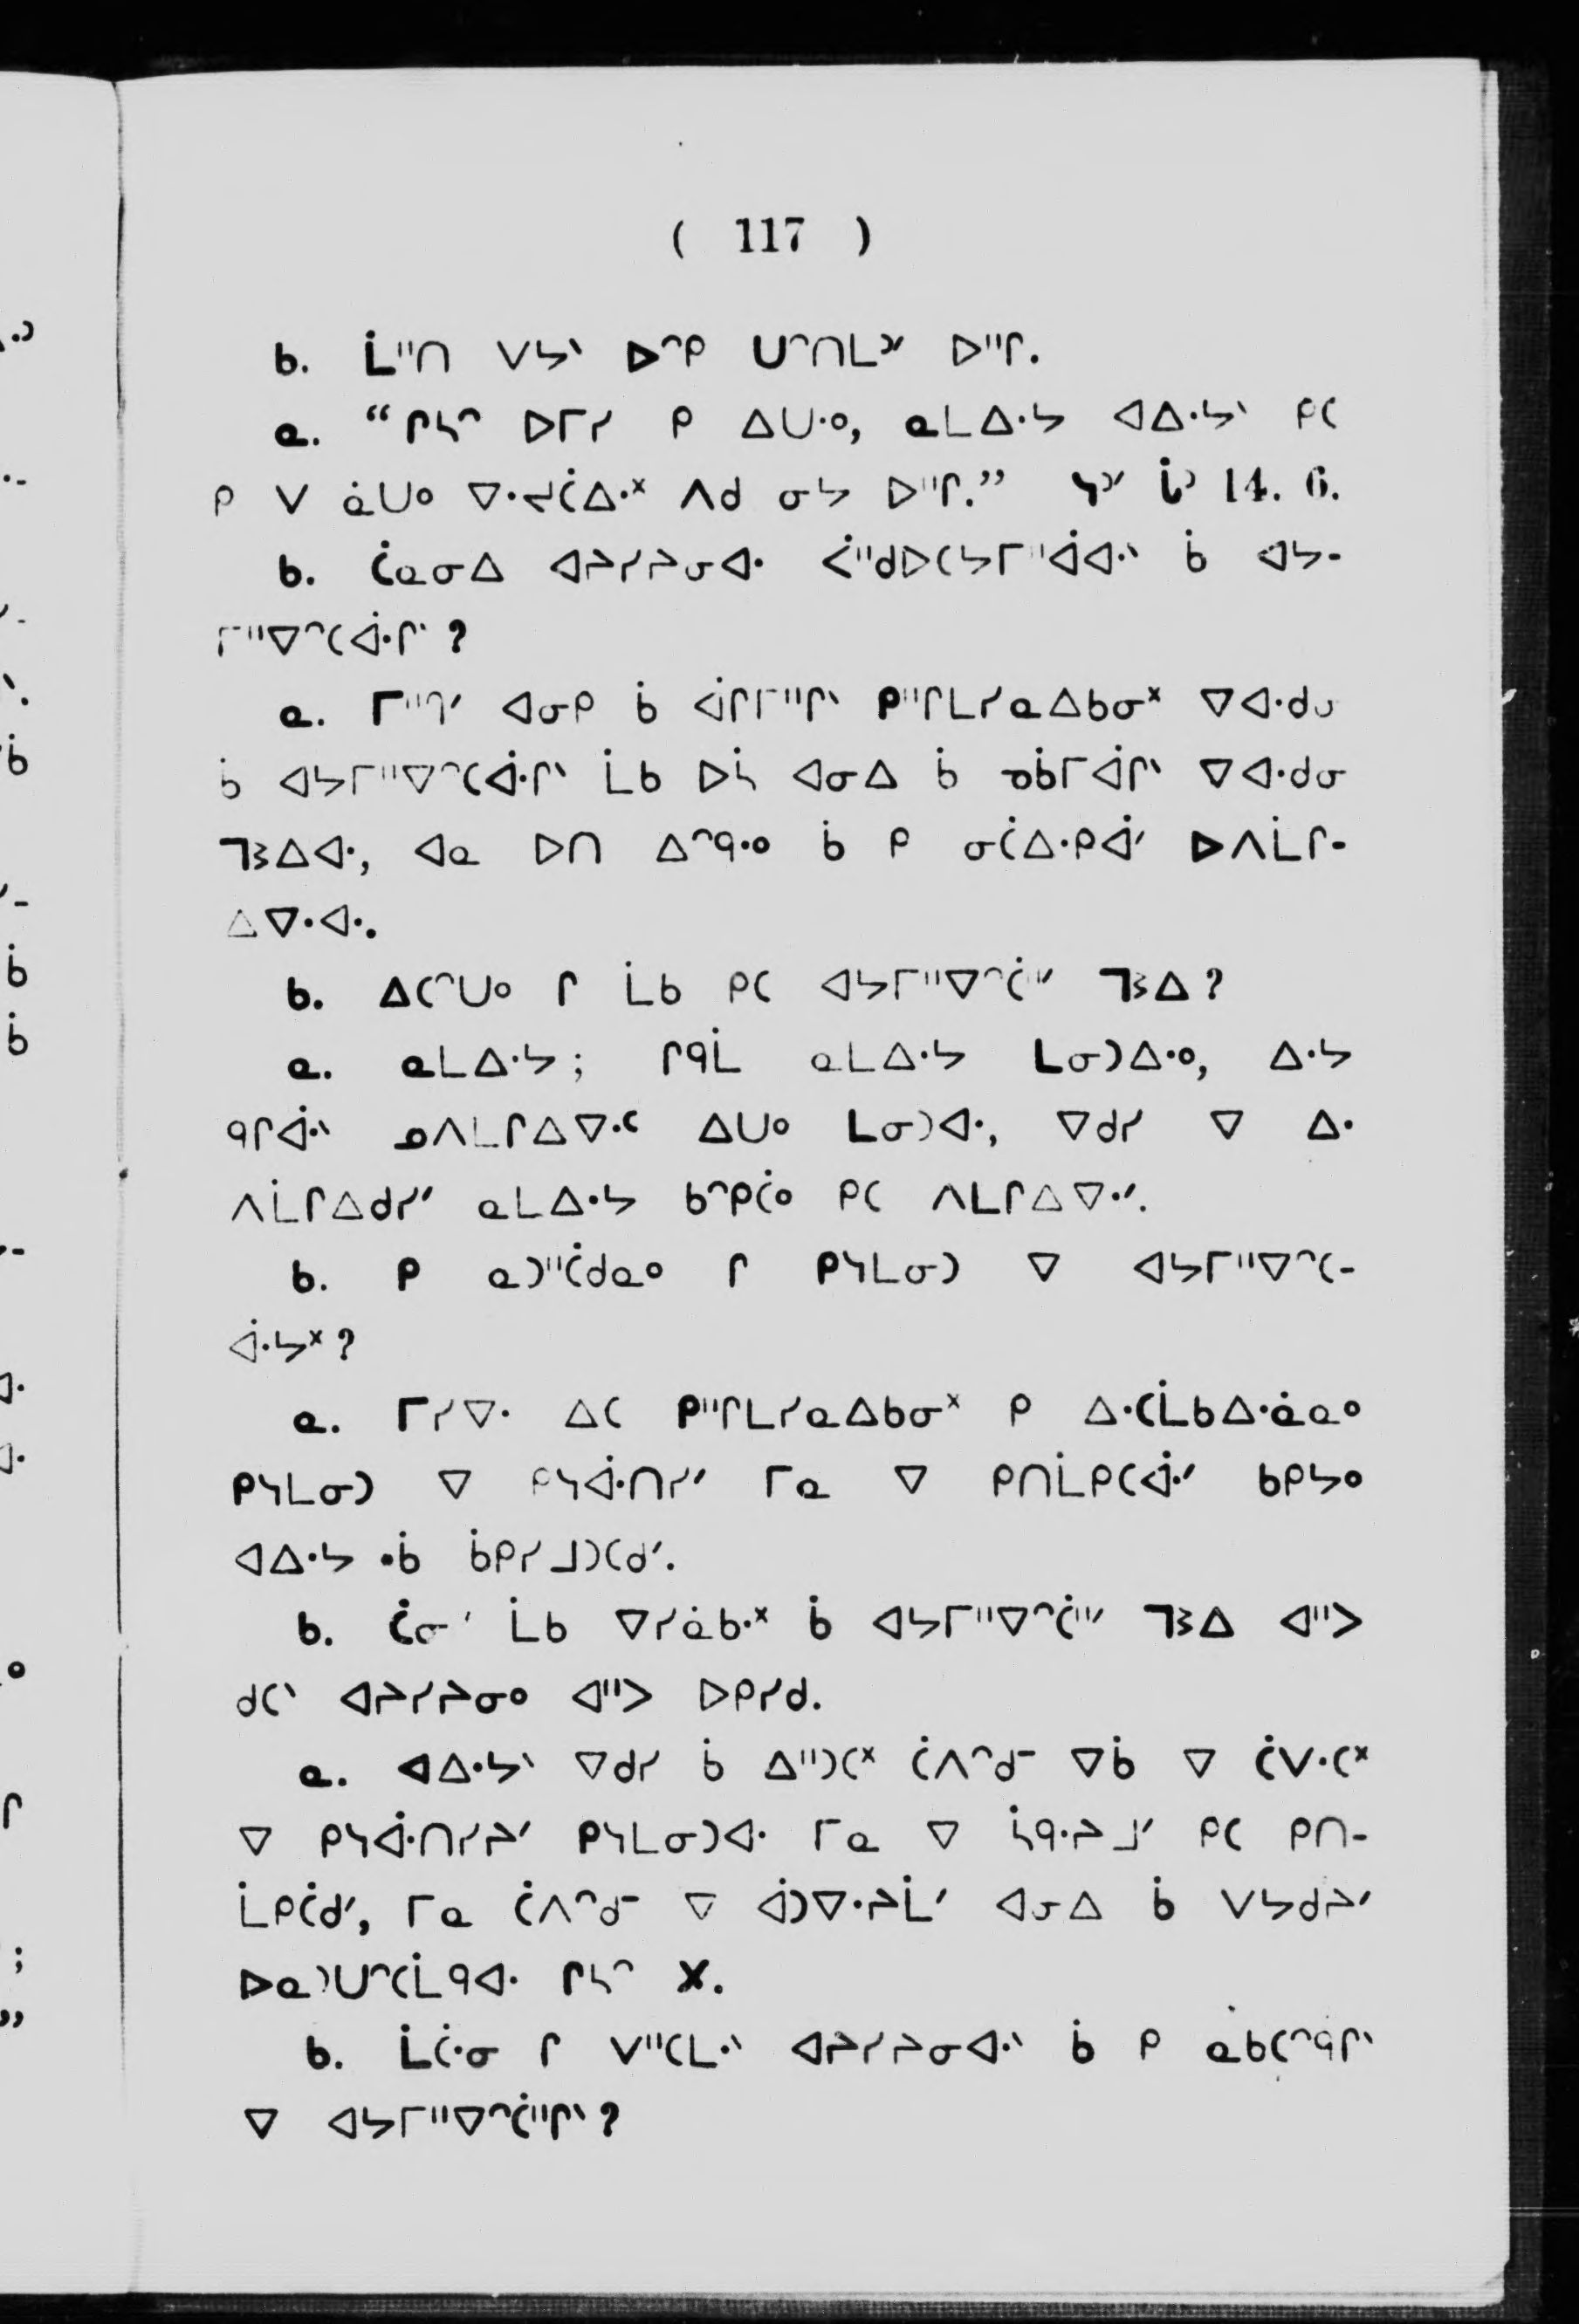 ( 117 )
ᑲ. ᒫᐦᑎ ᐯᔭᐠ ᐅᐢᑭ ᑌᐢᑎᒪᐣᐟ ᐅᐦᒋ.
ᓇ. “ᒋᓴᐢ ᐅᒥᓯ ᑭ ᐃᑌᐧᐤ, ᓇᒪᐃᐧᔭ ᐊᐃᐧᔭᐠ ᑭᑕ
ᑭ ᐯ ᓈᑌᐤ ᐁᐧᔪᑖᐃᐧᕽ ᐱᑯ ᓂᔭ ᐅᐦᒋ.” 14. 6.
ᑲ. ᑖᓇᓂᐃ ᐊᔨᓯᔨᓂᐊᐧ ᐹᐦᑯᐅᑕᔭᒥᐦᐋᐊᐧᐠ ᑳ ᐊᔭ-
ᒥᐦᐁᐢᑕᐚᒋᐠ ?
ᓇ. ᒥᐦᒉᐟ ᐊᓂᑭ ᑳ ᐋᒋᒥᐦᒋᐠ ᑭᐦᒋᒪᓯᓇᐃᑲᓂᕽ ᐁᐊᐧᑯᓂ
ᑳ ᐊᔭᒥᐦᐁᐢᑕᐚᒋᐠ ᒫᑲ ᐅᓵ ᐊᓂᐃ ᑳ ᓄᑳᒥᐋᒋᐠ ᐁᐊᐧᑯᓂ
ᒣᕒᐃᐊᐧ, ᐊᓇ ᐅᑎ ᐃᐢᑫᐧᐤ ᑳ ᑭ ᓂᑖᐃᐧᑭᐋᐟ ᐅᐱᒫᒋ-
ᐃᐁᐧᐊᐧ.
ᑲ. ᐃᑕᐢᑌᐤ ᒋ ᒫᑲ ᑭᑕ ᐊᔭᒥᐦᐁᐢᑖᐦᐟ ᒣᕒᐃ ?
ᓇ. ᓇᒪᐃᐧᔭ ; ᒋᑫᒫ ᓇᒪᐃᐧᔭ ᒪᓂᑐᐃᐧᐤ, ᐃᐧᔭ
ᑫᒋᐚᐠ ᓄᐱᒪᒋᐃᐁᐧᑦ ᐃᑌᐤ ᒪᓂᑐᐊᐧ, ᐁᑯᓯ ᐁ ᐃᐧ
ᐱᒫᒋᐃᑯᓯᐟ ᓇᒪᐃᐧᔭ ᑲᐢᑭᑖᐤ ᑭᑕ ᐱᒪᒋᐃᐁᐧᐟ.
ᑲ. ᑭ ᓇᑐᐦᑖᑯᓇᐤ ᒋ ᑭᓴᒪᓂᑐ ᐁ ᐊᔭᒥᐦᐁᐢᑕ-
ᐚᔭᕽ ?
ᓇ. ᒥᓯᐁᐧ ᐃᑕ ᑭᐦᒋᒪᓯᓇᐃᑲᓂᕽ ᑭ ᐃᐧᑕᒫᑲᐃᐧᓈᓇᐤ
ᑭᓴᒪᓂᑐ ᐁ ᑭᓴᐚᑎᓯᐟ ᒥᓇ ᐁ ᑭᑎᒫᑭᑕᐚᐟ ᑲᑭᔭᐤ
ᐊᐃᐧᔭ ᑳ ᑳᑭᓯᒧᑐᑕᑯᐟ.
ᑲ. ᑖᓂᐟ ᒫᑲ ᐁᓯᓈᑲᐧᕽ ᑳ ᐊᔭᒥᐦᐁᐢᑖᐦᐟ ᒣᕒᐃ ᐊᐦᐳ
ᑯᑕᐠ ᐊᔨᓯᔨᓂᐤ ᐊᐦᐳ ᐅᑭᓯᑯ.
ᓇ. ᐊᐃᐧᔭᐠ ᐁᑯᓯ ᑳ ᐃᐦᑐᑕᕽ ᑖᐱᐢᑯᐨ ᐁᑳ ᐁ ᑖᐯᐧᑕᕽ
ᐁ ᑭᓴᐚᑎᓯᔨᐟ ᑭᓴᒪᓂᑐᐊᐧ ᒥᓇ ᐁ ᓵᑫᐧᔨᒧᐟ ᑭᑕ ᑭᑎ-
ᒫᑭᑖᑯᐟ, ᒥᓇ ᑖᐱᐢᑯᐨ ᐁ ᐋᑐᐁᐧᔨᒫᐟ ᐊᓂᐃ ᑳ ᐯᔭᑯᔨᐟ
ᐅᓇᑐᑌᐢᑕᒫᑫᐊᐧ ᒋᓴᐢ X.
ᑲ. ᒫᑖᐧᓂ ᒋ ᐯᐦᑕᒪᐧᐠ ᐊᔨᓯᔨᓂᐊᐧᐠ ᑳ ᑭ ᓇᑲᑕᐢᑫᒋᐠ
ᐁ ᐊᔭᒥᐦᐁᐢᑖᐦᒋᐠ ?